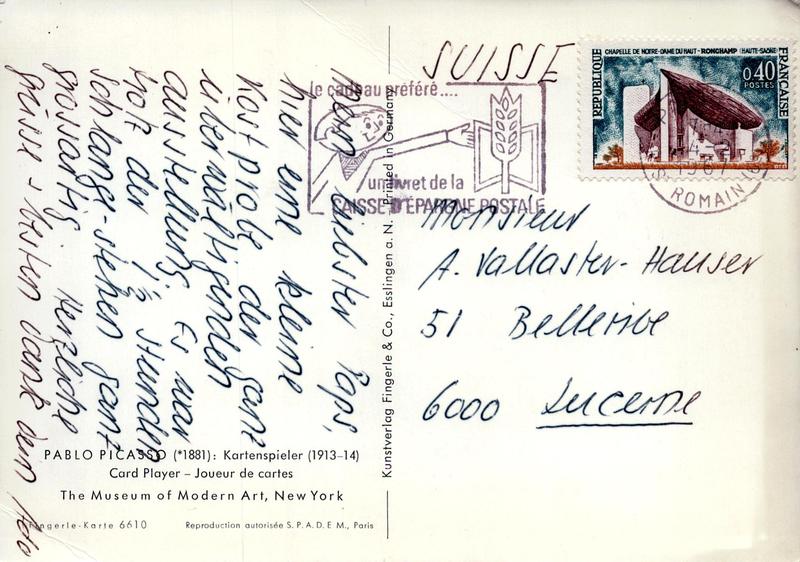 mein liebster Paps,
hier eine kleine
Kostprobe der ganz
überwältigenden
Ausstellung. Es war
trotz der 1½ Stunden
schlange-stehen ganz
grossartig. Herzliche
grüsse + besten Dank dein
SUISSE
le cadeau préféré....
un livret de la
CAISSE D'ÉPARGNE POSTALE
CHAPELLE DE NOTRE-DAME DU HAUT - RONCHAMP (HAUTE-SAÔNE)
RÉPUBLIQUE
FRANÇAISE
0,40
POSTES
1967
ROMAIN
Monsieur
A. Vallaster-Hauser
51 Bellerive
6000 Lucerne
Kunstverlag Fingerle & Co., Esslingen a. N. Printed in Germany
PABLO PICASSO (*1881): Kartenspieler (1913–14)
Card Player – Joueur de cartes
The Museum of Modern Art, New York
Fingerle-Karte 6610
Reproduction autorisée S. P. A. D. E M., Paris